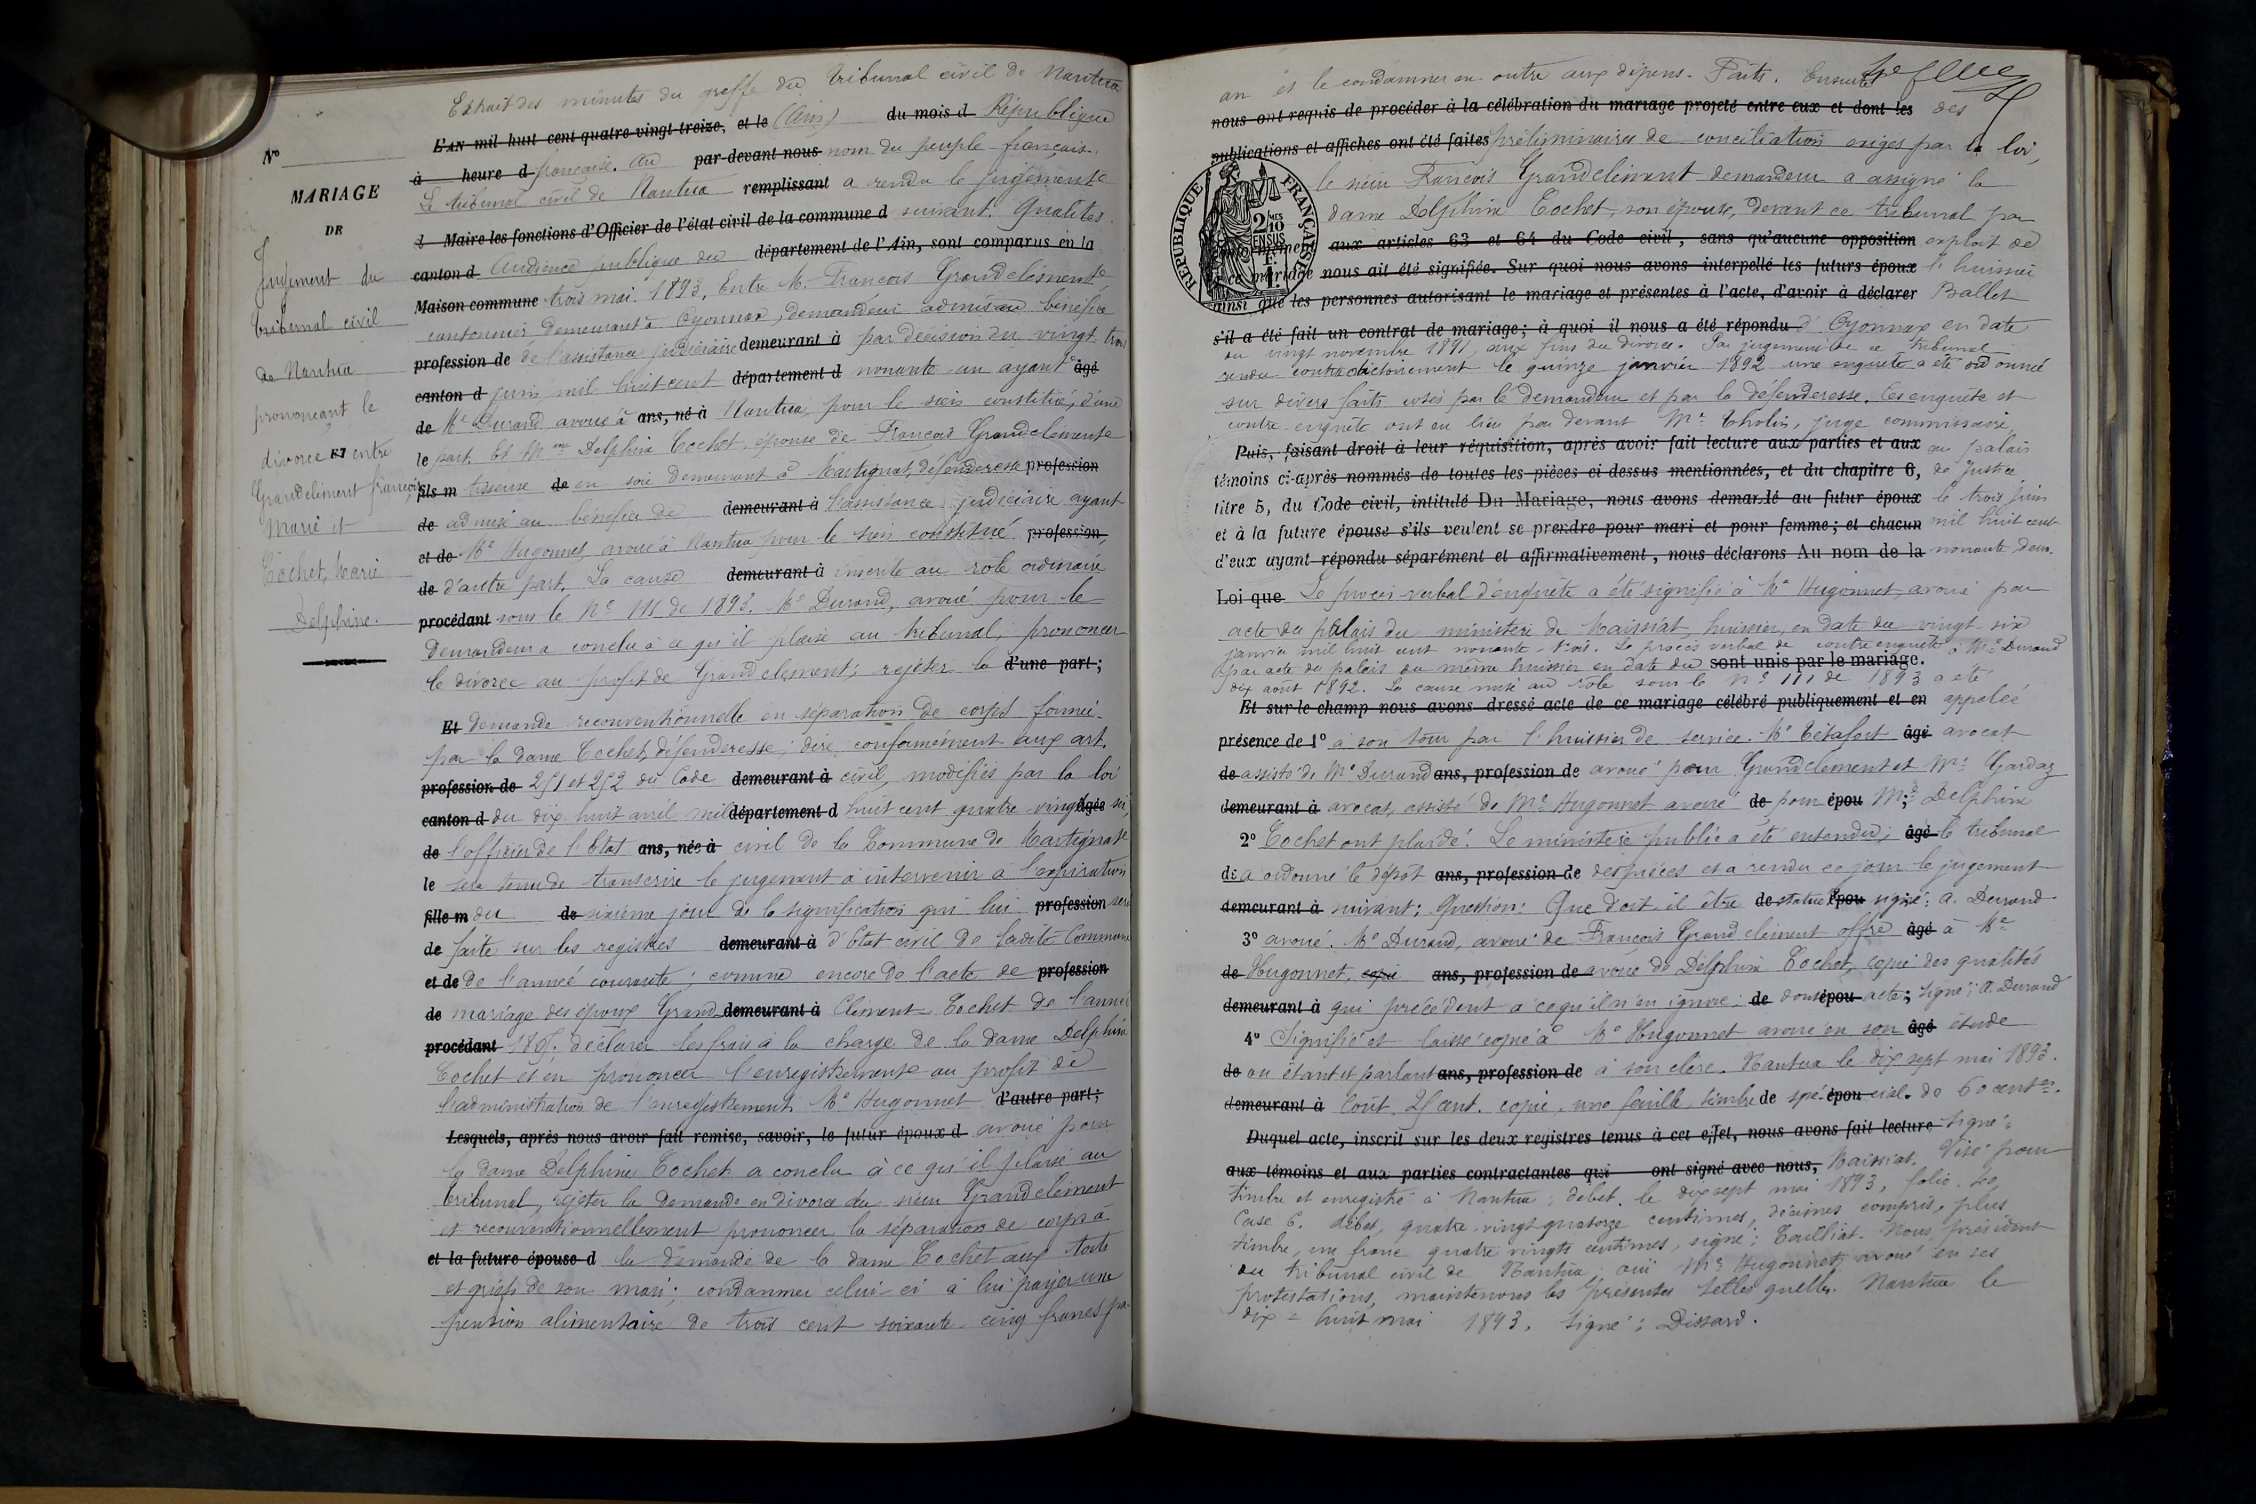 Extrait des minutes du greffe du tribunal civil de Nantua
L'AN mil huit cent quatre-vingt treize, et le (Ain) du mois d République
à heure d française. Au par-devant nous nom du peuple français.
Le tribunal civil de Nantua remplissant a rendu le jugement
d Maire les fonctions d'Officier de l'état civil de la commune d suivant. Qualités.
canton d Audience publique du département de l'Ain, sont comparus en la
Maison commune trois mai 1893, Entre M. François Grandclément
cantonnier demeurant à Oyonnax, demandeur admis au bénéfice
profession de de l'assistance judiciaire demeurant à par décision du vingt trois
canton d juin mil huit cent département d nonante-un ayant âgé
de Me Durand avoué à ans, né à Nantua, pour le sien constitué, d'une
le part. Et Mme Delphine Cochet, épouse de François Grandclément
fils m tisseuse de en soie demeurant à Martignat, défenderesse profession
de admise au bénéfice de demeurant à l'assistance judiciaire ayant
et de Me Hugonnet, avoué à Nantua pour le sien constitué profession,
de d'autre part. La cause demeurant à inscrite au rôle ordinaire
procédant sous le No 111 de 1893. Me Durand, avoué pour le
demandeur a conclu à ce qu'il plaise au tribunal, prononcer
le divorce au profit de Grandclément; rejeter la d'une part;
Et demande reconventionnelle en séparation de corps formée
par la dame Cochet, défenderesse; dire conformément aux art.
profession de 251 et 252 du Code demeurant à civil, modifiés par la loi
canton d du dix huit avril mil département d huit cent quatre-vingt âgée six,
de l'officier de l'Etat ans, née à civil de la Commune de Martignat
le sera tenu de transcrire le jugement à intervenir à l'expiration
fille m du de sixième jour de la signification qui lui profession sera
de faite sur les registres demeurant à d'Etat civil de ladite Commune
et de de l'année courante; comme encore de l'acte de profession
de mariage des époux Grand demeurant à Clément-Cochet de l'année
procédant déclarer les frais à la charge de la dame Delphine
Cochet et en prononcer l'enregistrement au profit de
l'administration de l'enregistrement. Me Hugonnet d'autre part;
Lesquels, après nous avoir fait remise, savoir, le futur époux d avoué pour
la dame Delphine Cochet a conclu à ce qu'il plaise au
tribunal, rejeter la demande en divorce du sieur Grandclément
et reconventionnellement prononcer la séparation de corps à
et la future épouse d la demande de la dame Cochet aux torts
et griefs de son mari; condamner celui-ci à lui payer une
pension alimentaire de trois cent soixante-cinq francs par
No
MARIAGE
DE
Jugement du
tribunal civil
de Nantua
prononçant le
divorce ET entre
Grandclément François
Marie et
Cochet, Marie
Delphine.
an et le condamner en outre aux dépens. Faits. Ensuite
nous ont requis de procéder à la célébration du mariage projeté entre eux et dont les des
publications et affiches ont été faites préliminaires de conciliation exigés par la loi,
le sieur François Grandclément demandeur a assigné la
dame Delphine Cochet, son épouse, devant ce tribunal par
aux articles 63 et 64 du Code civil, sans qu'aucune opposition exploit de
à ce mariage nous ait été signifiée. Sur quoi nous avons interpellé les futurs époux l'huissier
ainsi que les personnes autorisant le mariage et présentes à l'acte, d'avoir à déclarer Ballet
RÉPUBLIQUE FRANÇAISE
2/10 EN SUS
s'il a été fait un contrat de mariage; à quoi il nous a été répondu d'Oyonnax en date
du vingt novembre 1891, aux fins du divorce. Par jugement de ce tribunal
rendu contradictoirement le quinze janvier 1892 une enquête a été ordonnée
sur divers faits cotés par le demandeur et par la défenderesse. Ces enquête et
contre-enquête ont eu lieu par devant Mr Tholin, juge commissaire,
Puis, faisant droit à leur réquisition, après avoir fait lecture aux parties et aux au palais
témoins ci-après nommés de toutes les pièces ci-dessus mentionnées, et du chapitre 6, de justice
titre 5, du Code civil, intitulé Du Mariage, nous avons demandé au futur époux le trois juin
et à la future épouse s'ils veulent se prendre pour mari et pour femme; et chacun mil huit cent
d'eux ayant répondu séparément et affirmativement, nous déclarons Au nom de la nonante deux.
Loi que Le procès-verbal d'enquête a été signifié à Me Hugonnet avoué par
acte du palais du ministère de Maissiat, huissier, en date du vingt-six
janvier mil huit cent nonante-trois. Le procès verbal de contre enquête à Me Durand
par acte du palais du même huissier en date du sont unis par le mariage.
dix août 1892. La cause mise au rôle sous le No 111 de 1893 a été
Et sur-le-champ nous avons dressé acte de ce mariage célébré publiquement et en appelée
présence de 1o à son tour par l'huissier de service. Me Têtafort âgé avocat
de assisté de Me Durand ans, profession de avoué pour Grandclément et Me Gardaz
demeurant à avocat, assisté de Me Hugonnet avoué de pour épou Mme Delphine
2o Cochet ont plaidé. Le ministère public a été entendu; âgé le tribunal
de a ordonné le dépôt ans, profession de des pièces et a rendu ce jour le jugement
demeurant à suivant: Question: Que doit-il être de statué épou signé: A. Durand
3o avoué. Me Durand, avoué de François Grandclément offre âgé à Me
de Hugonnet, copie ans, profession de avoué de Delphine Cochet, copie des qualités
demeurant à qui précèdent à ce qu'il n'en ignore; de dont épou acte; signé: A. Durand
4o Signifié et laissé copie à Me Hugonnet avoué en son âgé étude
de où étant et parlant ans, profession de à son clerc. Nantua le dix sept mai 1893.
demeurant à Coût, 25 cent. copie, une feuille, timbre de spé-épou-cial de 60 centes.
Duquel acte, inscrit sur les deux registres tenus à cet effet, nous avons fait lecture Signé:
aux témoins et aux parties contractantes qui ont signé avec nous, Maissiat. Visé pour
timbre et enregistré à Nantua; débet, le dix sept mai 1893, folio 20,
Case 6. débet, quatre-vingt-quatorze centimes, décimes compris, plus
timbre, un franc quatre vingts centimes, signé: Tailliat. Nous, président
du tribunal civil de Nantua ouï Me Hugonnet, avoué en ses
protestations, maintenons les présentes telles quelles. Nantua le
dix-huit mai 1893. Signé: Dissard.